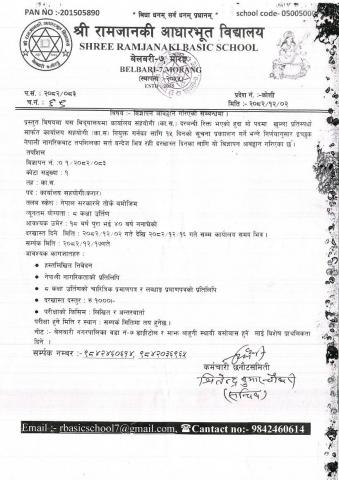 PAN NO :-201505890
" विद्या धनम् सर्व धनम् प्रधानम् "
school code- 05005000
श्री रामजानकी आधारभूत विद्यालय
SHREE RAMJANAKI BASIC SCHOOL
बेलबारी-७ मोरङ
BELBARI-7, MORANG
ESTD: 2055
प.सं. : २०८२/०८३
प्रदेश नं. -कोशी
च.नं. : ६९
मिति:- २०८२/१२/०२
विषय:- विज्ञापन आवह्वान गरिएको सम्वन्धमा।
प्रस्तुत विषयमा यस विद्यालयमा कार्यालय सहयोगी (का.स.) दरवन्दी रिक्त भएको हुदा सो पदमा खुल्ला प्रतिस्पर्धा
मार्फत कार्यालय सहयोगी (का.स) नियुक्त गर्नका लागि १५ दिनको सूचना प्रकाशन गर्ने भन्ने निर्णयानुसार इच्छुक
नेपाली नागरिकबाट तपसिलका सर्त वन्देज भित्र रही दरखास्त दिनका लागि यो विज्ञापन आवह्वान गरिएका छ।
तपसिल
विज्ञापन नं.: ०१/२०८२/०८३
कोटा सङ्ख्या : १
तह : का.स.
पद : कार्यालय सहयोगी(करार)
तलब स्केल : नेपाल सरकारले तोके बमोजिम
न्यूनतम योग्यता : ८ कक्षा उर्तिण
आवश्यक उमेर : १८ वर्ष पुरा भई ४० वर्ष ननाघेको
दरखास्त दिने मिति : २०८२/१२/०२ गते देखि २०८२/१२/१६ गते सम्म कार्यालय समय भित्र।
सम्पर्क मिति : २०८२/१२/१७गते
आवश्यक कागजातहरु :
● हस्तलिखित निवेदन
● नेपाली नागरिकताको प्रतिलिपि
● ८ कक्षा उर्तिणको चारित्रिक प्रमाणपत्र र लब्धाङ्क प्रमाणपत्रको प्रतिलिपि
● दरखास्त दस्तुर : रु १०००/-
● परीक्षाको किसिम : लिखित र अन्तरवार्ता
परीक्षा हुने मिति र स्थान : सम्पर्क मितिमा तय हुनेछ।
नोट :- बेलबारी नगरपालिका वडा नं-७ स्थायी बसोबास हुने लाई विशेष प्राथमिकता
दिने ।
सम्पर्क नम्बर :-९८४२४६०६१४, ९८४२०३६९६५
कर्मचारी छनौटसमिती
Email :- rbasicschool7@gmail.com, ☎Cantact no:- 9842460614